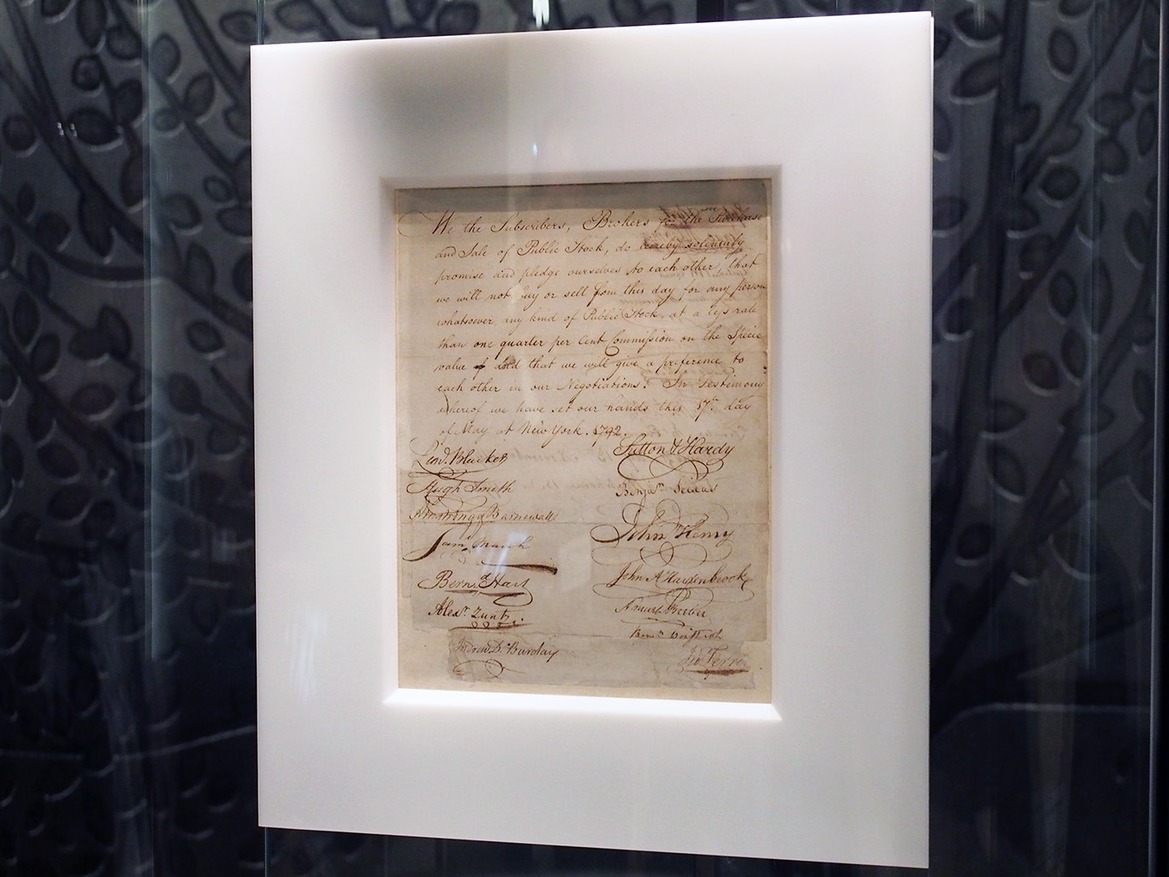 We the Subscribers, Brokers for the Purchase
and Sale of Public Stock, do hereby solemnly
promise and pledge ourselves to each other, that
we will not buy or sell from this day for any person
whatsoever, any kind of Public Stock, at a less rate
than one quarter per Cent Commission on the Specie
value of and that we will give a preference to
each other in our Negotiations. In Testimony
whereof we have set our hands this 17th day
of May at New York. 1792.
Leod. Bleecker
Hugh Smith
Armstrong & Barnewall
Saml. March
Bernd. Hart
Alexr. Zuntz
Andrew D. Barclay
Sutton & Hardy
Benjn. Seixas
John Henry
John A Hardenbrook
Amurt
Benjn
Jno Ferrers